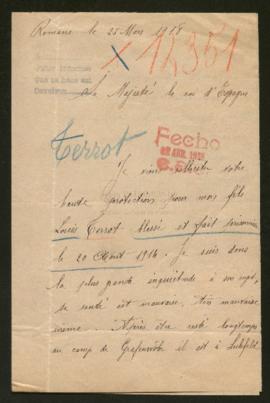 Romans le 25 Mars 1918
X 14,351
Sa Majesté le roi d'Espagne
Terrot
Fecho
Je viens votre
haute protection pour mon fils
Louis Terrot blessé et fait prisonnier
le 20 Août 1914. Je suis dans
la plus grande inquiétude à son sujet,
sa santé est mauvaise, très mauvaise
même. Après être resté longtemps
au camp de Grafenwöhr il est à Lechfeld